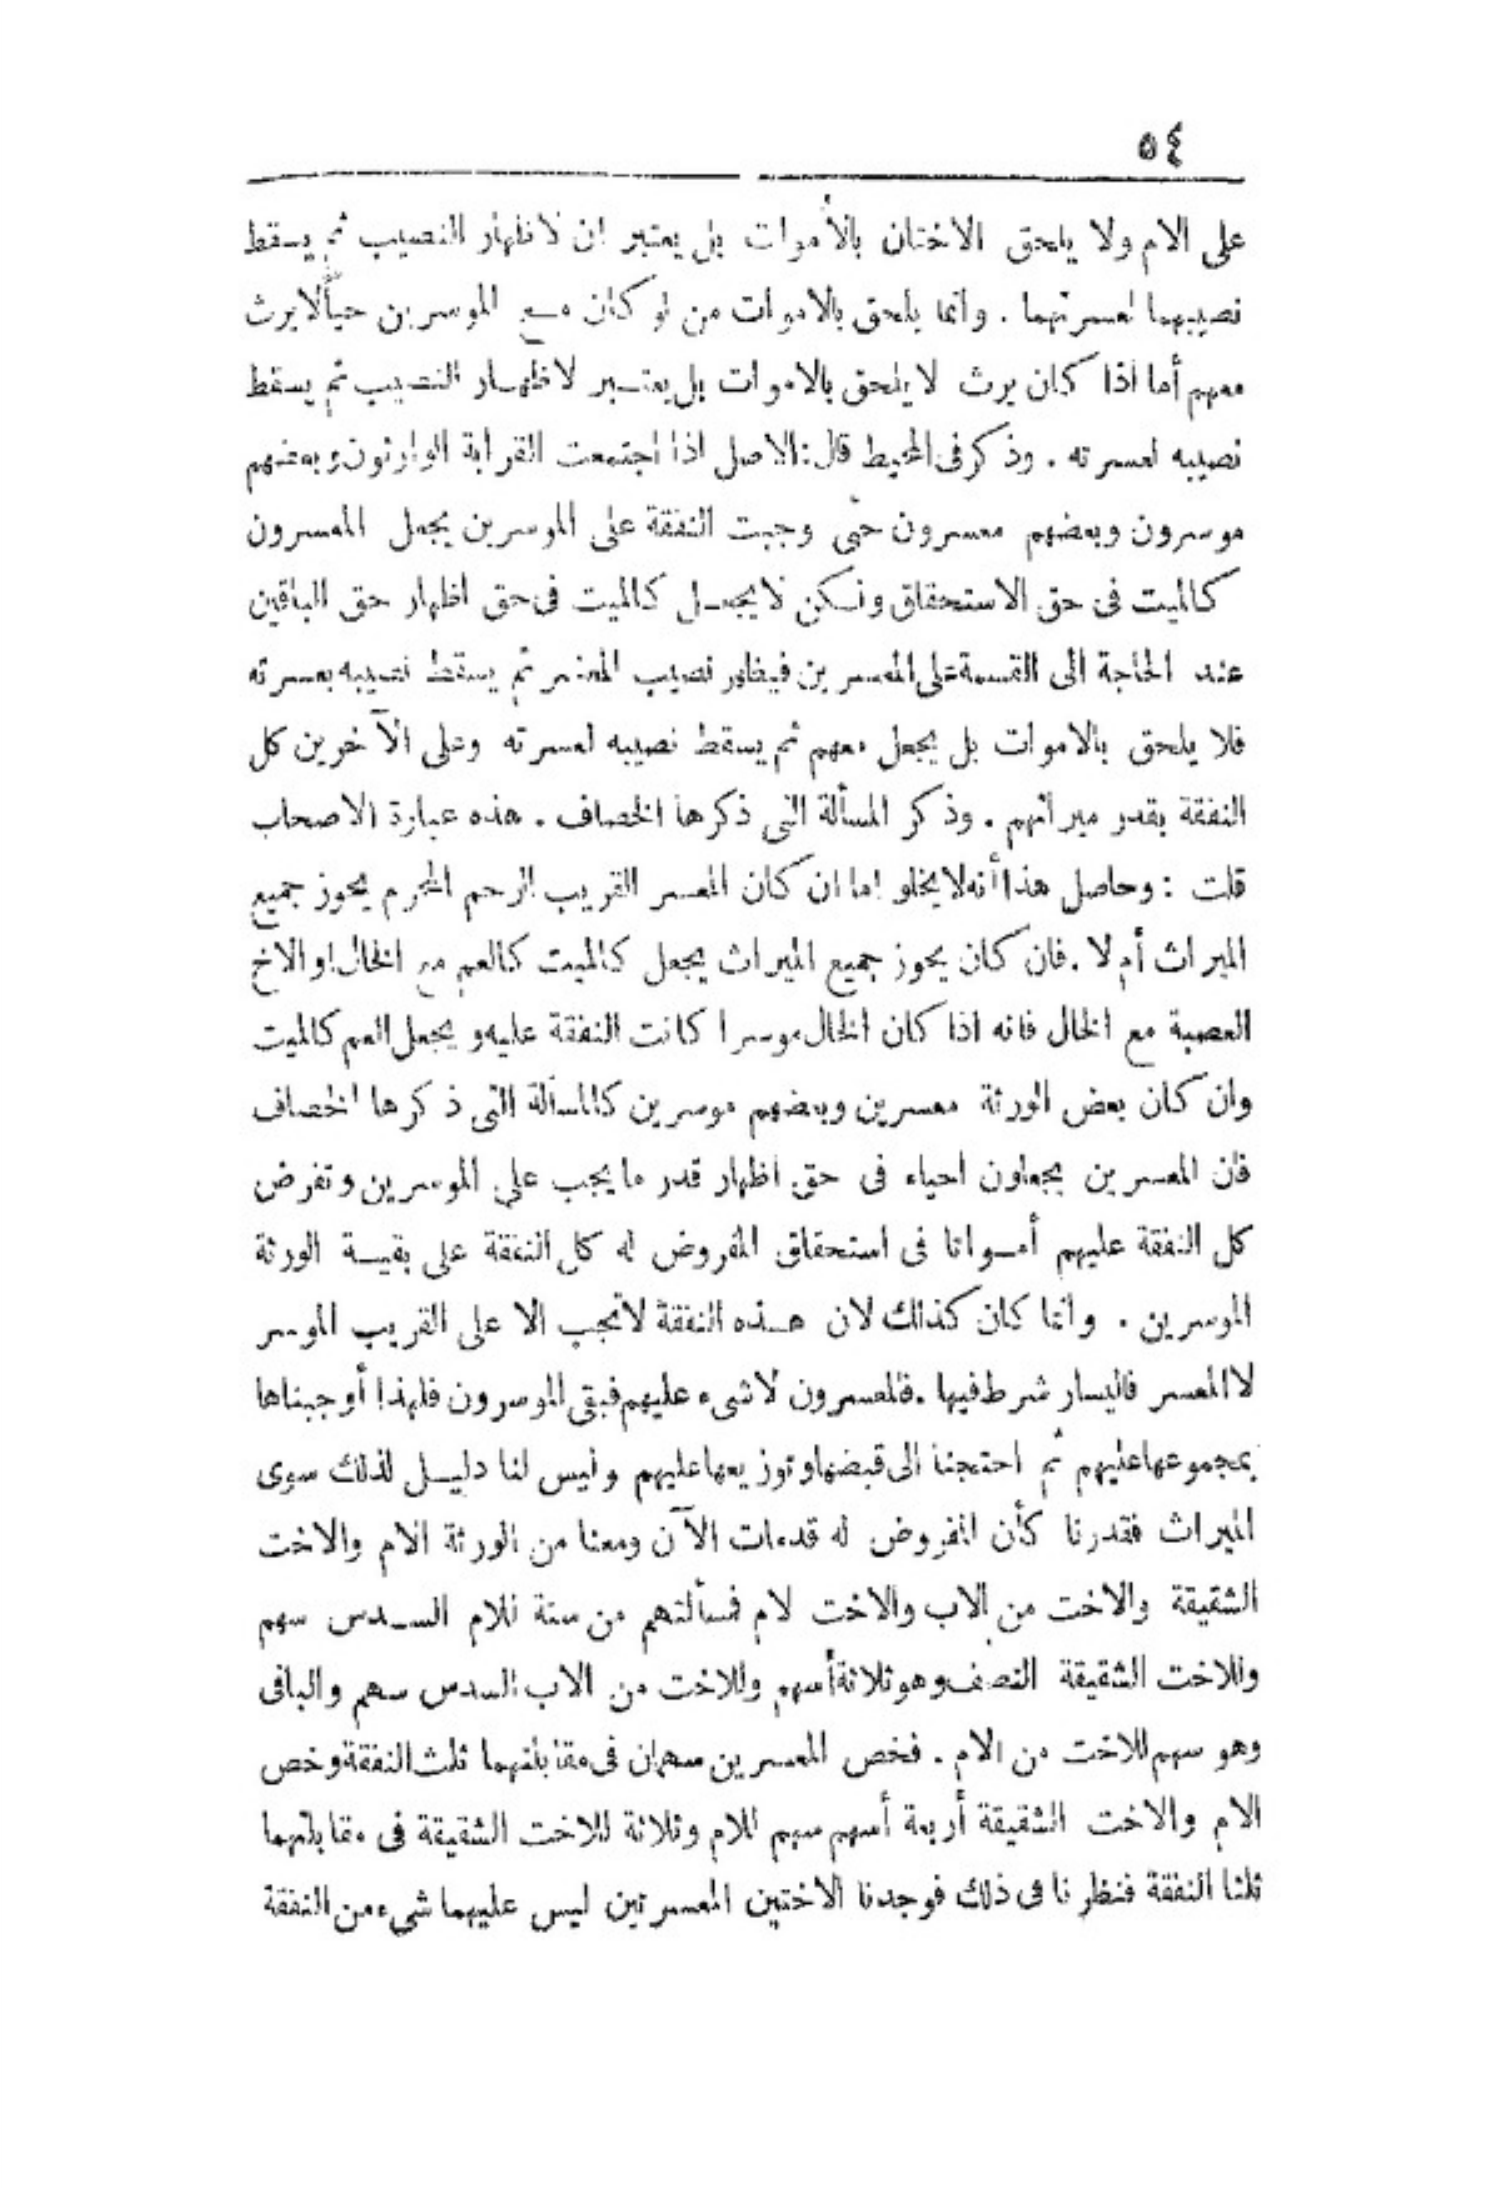 ٥٤
على الام ولا يلحق الاختان بالأموات بل يعتبر ان لاظهار النصيب ثم يسقط
نصيبهما لعسرتهما . وانما يلحق بالاموات من لو كان مع الموسرين حياً لا يرث
معهم أما اذا كان يرث لا يلحق بالاموات بل يعتبر لاظهار النصيب ثم يسقط
نصيبه لعسرته . وذكر فى المحيط قال : الاصل اذا اجتمعت القرابة الوارثون وبعضهم
موسرون وبعضهم معسرون حتى وجبت النفقة على الموسرين يجعل المعسرون
كالميت فى حق الاستحقاق ولكن لا يجعل كالميت فى حق اظهار حق الباقين
عند الحاجة الى القسمة على المعسرين فيظهر نصيب المعسر ثم يسقط نصيبه بعسرته
فلا يلحق بالاموات بل يجعل معهم ثم يسقط نصيبه لعسرته وعلى الآخرين كل
النفقة بقدر ميراثهم . وذكر المسألة التى ذكرها الخصاف . هذه عبارة الاصحاب
قلت : وحاصل هذا أنه لا يخلو اما ان كان المعسر القريب الرحم المحرم يحوز جميع
الميراث أم لا . فان كان يحوز جميع الميراث يجعل كالميت كالعم مع الخال او الاخ
العصبة مع الخال فانه اذا كان الخال موسرا كانت النفقة عليه ويجعل العم كالميت
وان كان بعض الورثة معسرين وبعضهم موسرين كالمسألة التى ذكرها الخصاف
فان المعسرين يجعلون احياء فى حق اظهار قدر ما يجب على الموسرين وتفرض
كل النفقة عليهم أمواتا فى استحقاق المفروض له كل النفقة على بقية الورثة
الموسرين . وانما كان كذلك لان هذه النفقة لا تجب الا على القريب الموسر
لا المعسر فاليسار شرط فيها . فالمعسرون لا شىء عليهم فبقى الموسرون فلهذا أوجبناها
بمجموعها عليهم ثم احتجنا الى قبضها وتوزيعها عليهم وليس لنا دليل لذلك سوى
الميراث فقدرنا كأن المفروض له قدمات الآن ومعنا من الورثة الام والاخت
الشقيقة والاخت من الاب والاخت لام فمسألتهم من ستة للام السدس سهم
وللاخت الشقيقة النصف وهو ثلاثة أسهم وللاخت من الاب السدس سهم والباقى
وهو سهم للاخت من الام . فخص المعسرين سهمان فى مقابلتهما ثلث النفقة وخص
الام والاخت الشقيقة أربعة أسهم سهم للام وثلاثة للاخت الشقيقة فى مقابلتهما
ثلثا النفقة فنظرنا فى ذلك فوجدنا الاختين المعسرتين ليس عليهما شىء من النفقة